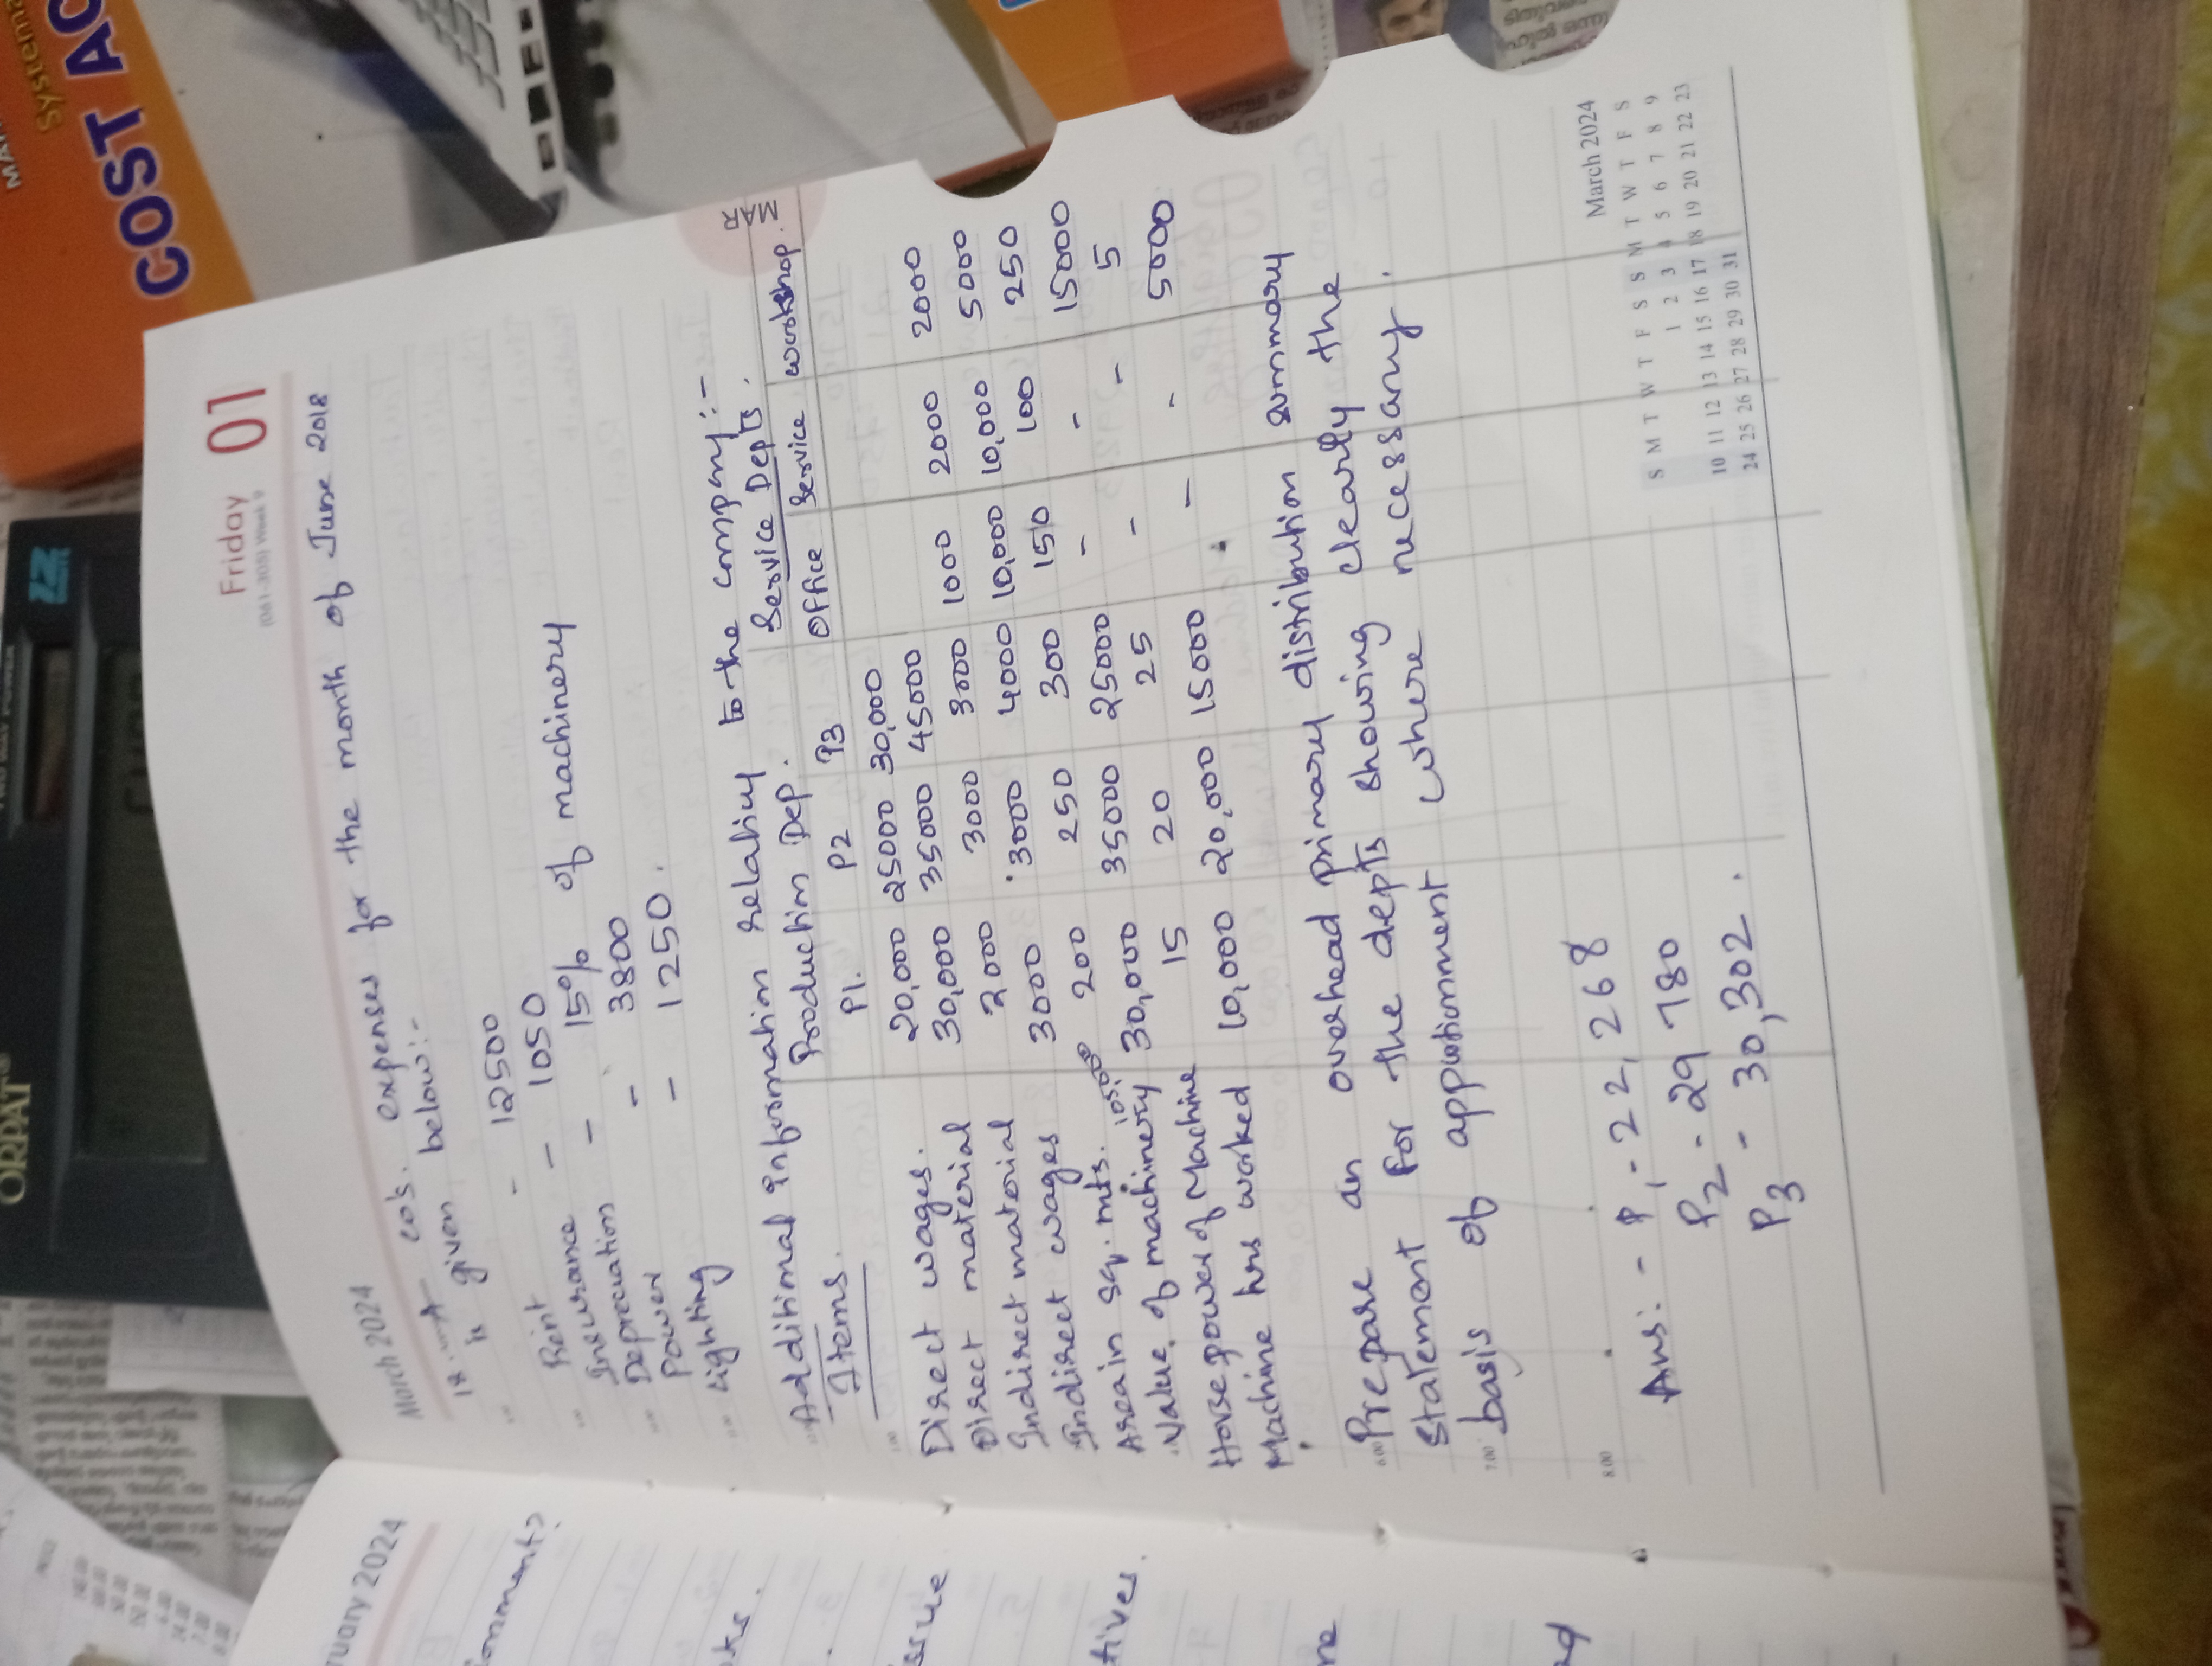 ORPAT
12
Systema
COST AC
ruary 2024
March 2024
Friday 01
(061-305) Week 9
18. A co's. expenses for the month of June 2018
is given below:-
Rent - 12500
Insurance - 1050
Depreciation - 15% of machinery
Power - 3800
Lighting - 1250.
Additional information relating to the company:-
Items. Production Dep. Service Depts.
P1. P2 P3 Office Service workshop.
MAR
Direct wages. 20,000 25000 30,000
Direct material 30,000 35000 45000
Indirect material 2000 3000 3000 1000 2000 2000
Indirect wages 3000 3000 4000 10,000 10,000 5000
Area in sq. mts. 200 250 300 150 100 250
Value of machinery 105,000 30,000 35000 25000 - - 15000
Horse power of Machine 15 20 25 - - 5
Machine hrs worked 10,000 20,000 15000 - - 5000
Prepare an overhead primary distribution summary
statement for the depts showing clearly the
basis of apportionment where necessary.
6.00
7.00
8.00
Ans: - P1 - 22,268
P2 - 29 780
P3 - 30,302.
March 2024
S M T W T F S S M T W T F S
1 2 3 4 5 6 7 8 9
10 11 12 13 14 15 16 17 18 19 20 21 22 23
24 25 26 27 28 29 30 31